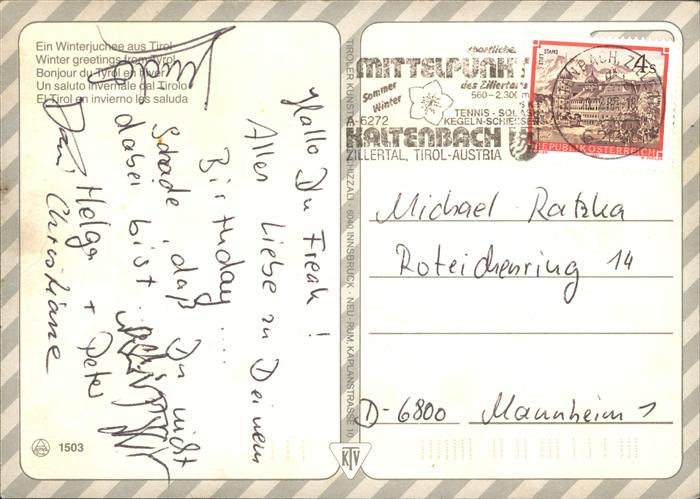 Ein Winterjuchee aus Tirol
Winter greetings from Tyrol
Bonjour du Tyrol en hiver
Un saluto invernale dal Tirolo
El Tirol en invierno les saluda
Hallo Du Freak!
Alles Liebe zu Deinem
Birthday....
Schade, daß Du nicht
dabei bist.
Helga + Peter
Christiane
1503
TIROLER KUNST
CHIZZALI · 6040 INNSBRUCK · NEU-RUM, KAPLANSTRASSE 10
KTV
sportliche
MITTELPUNKT
des Zillertales
560-2.300 m
Sommer
Winter
TENNIS-SQUASH
KEGELN-SCHIESSEN
A-6272
KALTENBACH
ZILLERTAL, TIROL-AUSTRIA
STIFT STAMS
4 S
REPUBLIK ÖSTERREICH
Michael Ratzka
Roteichenring 14
D-6800 Mannheim 1